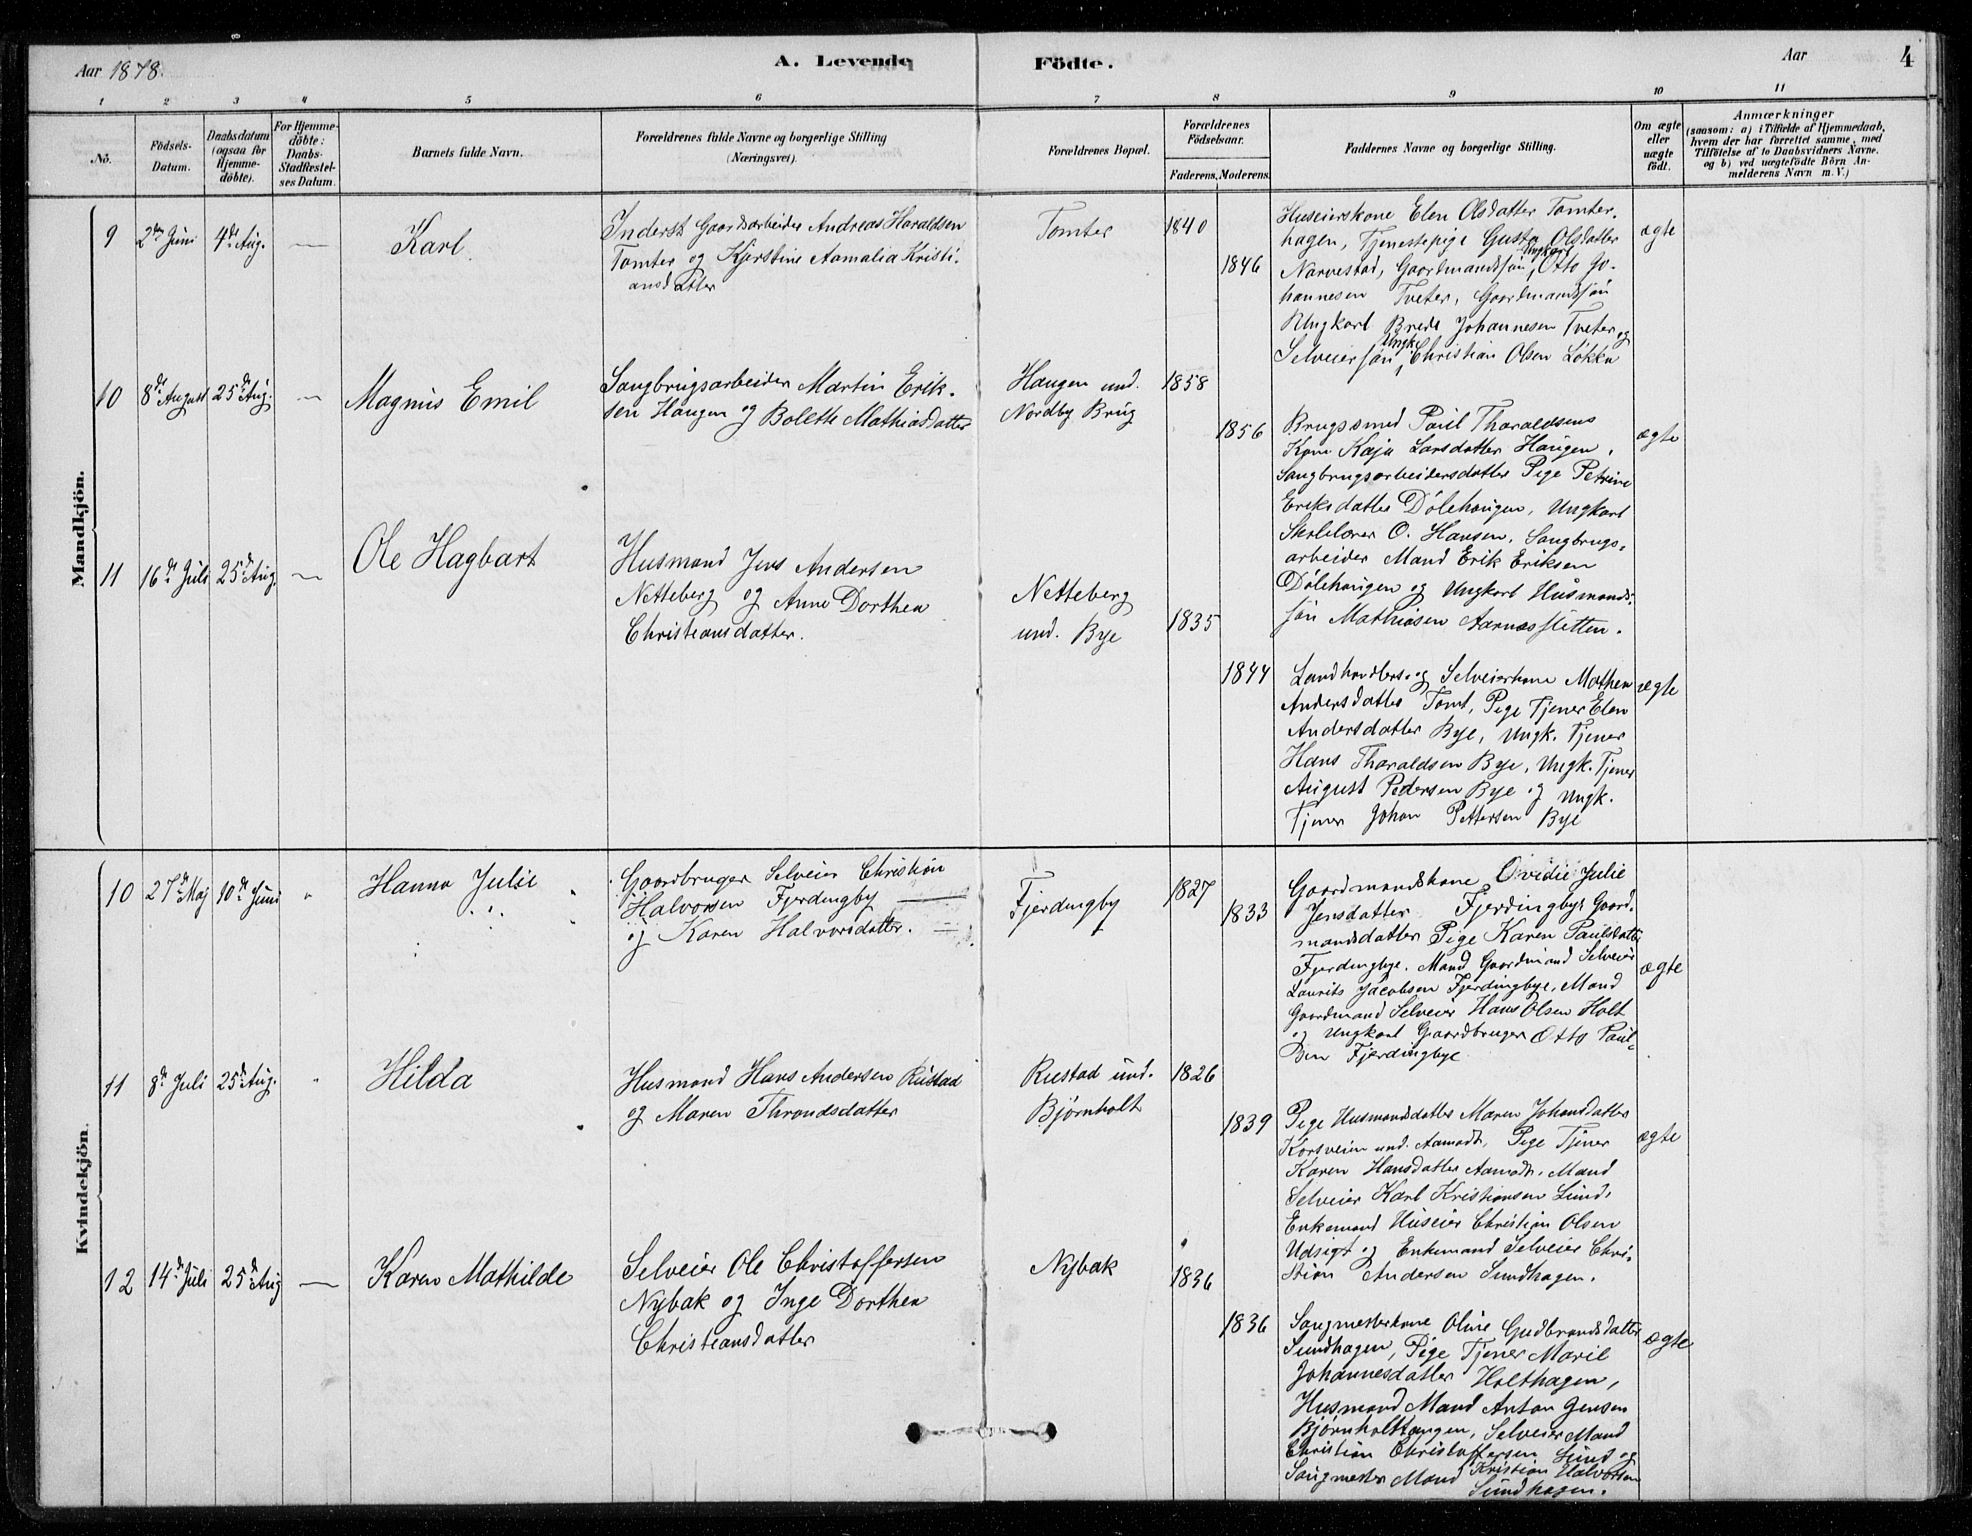 Aar 1878.
A. Levende
Födte.
Aar
4
1 2 3 4 5 6 7 8 9 10 11
No.
Födsels-
Datum.
Daabsdatum
(ogsaa for
Hjemme-
döbte).
For Hjemme-
döbte:
Daabs-
Stadfæstel-
ses Datum.
Barnets fulde Navn.
Forældrenes fulde Navne og borgerlige Stilling
(Næringsvei).
Forældrenes Bopæl.
Forældrenes
Födselsaar.
Faderens.
Moderens.
Faddernes Navne og borgerlige Stilling.
Om ægte
eller
uægte
født.
Anmærkninger
(saasom: a) i Tilfælde af Hjemmedaab,
hvem der har forrettet samme, med
Tilföielse af to Daabsvidners Navne.
og b) ved uægtefödte Börn An-
melderens Navn m. V.)
Mandkjön.
9
2den Juni
4de Aug.
—
Karl
Inderst Gaardsarbeider Andreas Haraldsen
Tomter og Kjerstine Aamalia Kristi-
ansdatter
Tomter
1840
1846
Huseierskone Elen Olsdatter Tomter-
hagen, Tjenestepige Gusta Olsdatter
Narvestad, Gaardmandssön Ungkarl Otto Jo-
hannesen Tveter, Gaardmandssön
Ungkarl Brede Johannesen Tveter og
Selveiersön Ungk. Christian Olsen Løkka
ægte
10
8de August
25de Aug.
—
Magnus Emil
Saugbrugsarbeider Martin Erik-
sen Haugen og Bolette Mathiasdatter
Haugen und.
Nordby Brug
1858
1856
Brugssmed Paul Tharaldsens
Kone Kaja Larsdatter Haugen,
Saugbrugsarbeidersdatter Pige Petrine
Eriksdatter Dölehaugen, Ungkarl
Skolelærer O. Hansen, Saugbrugs-
arbeider Mand Erik Eriksen
Dölehaugen og Ungkarl Husmands-
sön Mathiasen Aarnessletten.
ægte
11
16de Juli
25de Aug.
—
Ole Hagbart
Husmand Jens Andersen
Netteberg og Anne Dorthea
Christiansdatter.
Netteberg
und. Bye
1835
1844
Landhandlers- og Selveierkone Mathea
Andersdatter Tomt, Pige Tjener Elen
Andersdatter Bye, Ungk. Tjener
Hans Tharaldsen Bye, Ungk. Tjener
August Pedersen Bye og Ungk.
Tjener Johan Pettersen Bye
ægte
Kvindekjön.
10
27de Maj
10de Juni
"
Hanna Julie
Gaardbruger Selveier Christian
Halvorsen Fjerdingby
og Karen Halvorsdatter.
Fjerdingby
1827
1833
Gaardmandskone Ovidie Julie
Jensdatter Fjerdingbye Gaard-
mandsdatter Pige Karen Paulsdatter
Fjerdingbye. Mand Gaardmand Selveier
Laurits Jacobsen Fjerdingbye, Mand
Gaardmand Selveier Hans Olsen Holt
og Ungkarl Gaardbruger Otto Paul-
sen Fjerdingbye
ægte
11
8de Juli
25de Aug.
"
Hilda
Husmand Hans Andersen Rustad
og Maren Throndsdatter
Rustad und.
Bjørnholt
1826
1839
Pige Husmandsdatter Maren Johansdatter
Korsveien und. Aamodt, Pige Tjener
Karen Hansdatter Aamodt. Mand
Selveier Karl Kristiansen Lund,
Enkemand Huseier Christian Olsen
Udsigt og Enkemand Selveier Chri-
stian Andersen Sundhagen.
ægte
12
14de Juli
25de Aug
—
Karen Mathilde
Selveier Ole Christoffersen
Nybak og Inge Dorthea
Christiansdatter
Nybak
1836
1836
Saugmesterkone Oline Gudbrandsdatter
Sundhagen, Pige Tjener Marie
Johannesdatter Holthagen,
Husmand Mand Anton Jensen
Bjørnholthaugen, Selveier Mand
Christian Christoffersen Lund og
Saugmester Mand Kristian Halvorsen
Sundhagen.
ægte